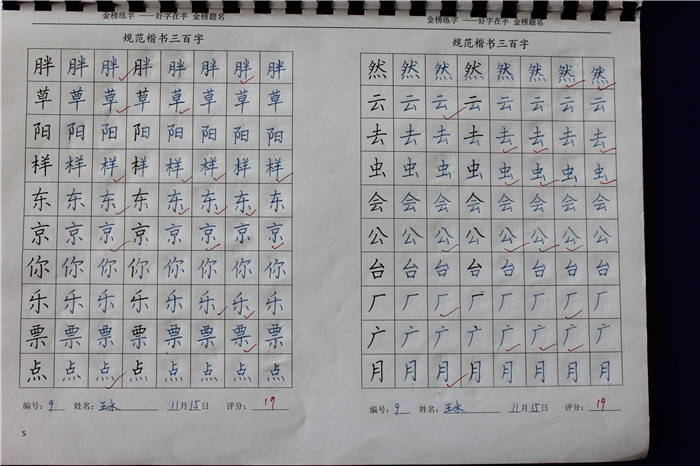 金榜练字 ——好字在手 金榜题名
规范楷书三百字
胖 胖 胖 胖 胖 胖 胖 胖
草 草 草 草 草 草 草 草
阳 阳 阳 阳 阳 阳 阳 阳
样 样 样 样 样 样 样 样
东 东 东 东 东 东 东 东
京 京 京 京 京 京 京 京
你 你 你 你 你 你 你 你
乐 乐 乐 乐 乐 乐 乐 乐
票 票 票 票 票 票 票 票
点 点 点 点 点 点 点 点
编号: 9 姓名: 王水 11月15日 评分: 19
5
金榜练字 ——好字在手 金榜题名
规范楷书三百字
然 然 然 然 然 然 然 然
云 云 云 云 云 云 云 云
去 去 去 去 去 去 去 去
虫 虫 虫 虫 虫 虫 虫 虫
会 会 会 会 会 会 会 会
公 公 公 公 公 公 公 公
台 台 台 台 台 台 台 台
厂 厂 厂 厂 厂 厂 厂 厂
广 广 广 广 广 广 广 广
月 月 月 月 月 月 月 月
编号: 9 姓名: 王水 11月15日 评分: 19